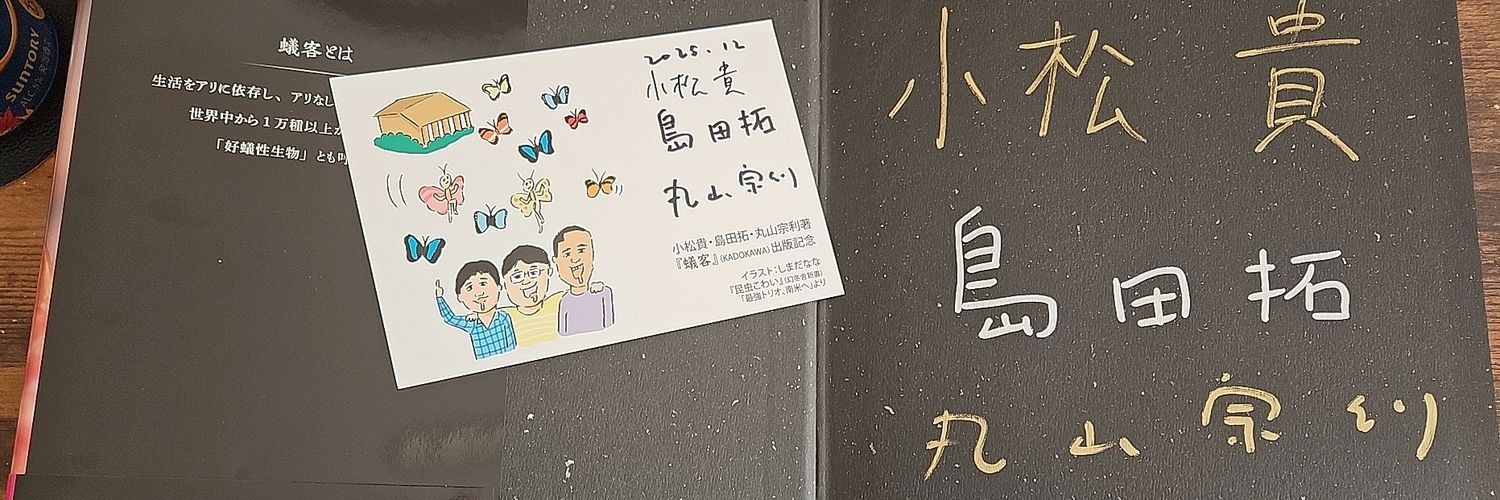 SUNTORY
蟻客とは
生活をアリに依存し、アリなし
世界中から1万種以上が
「好蟻性生物」とも呼
2025.12
小松貴
島田拓
丸山宗利
小松貴・島田拓・丸山宗利著
『蟻客』(KADOKAWA)出版記念
イラスト:しまだなな
『昆虫こわい』(幻冬舎新書)
「最強トリオ、南米へ」より
小松貴
島田拓
丸山宗利